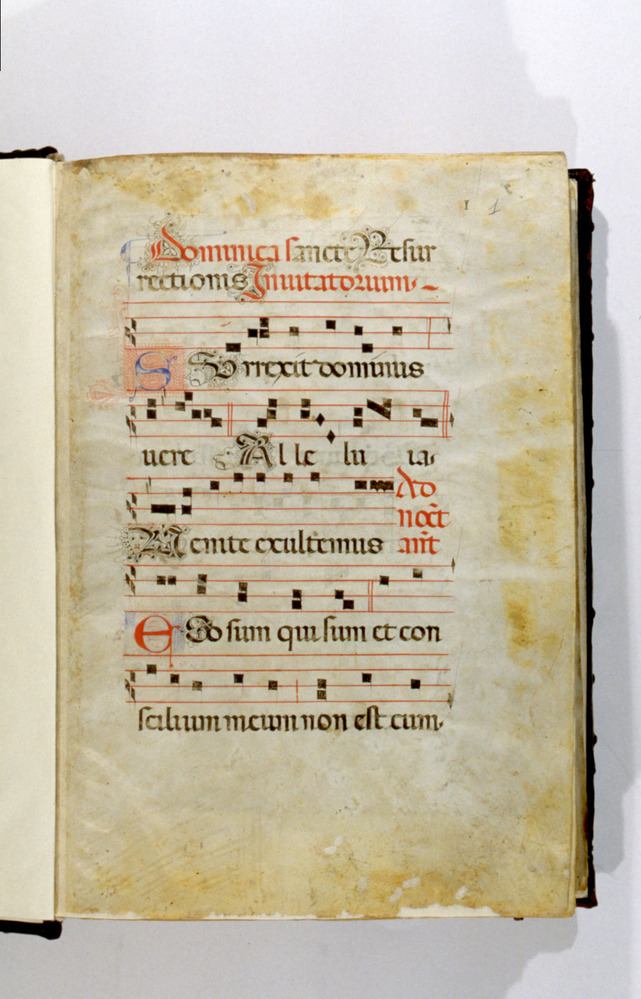 I 1
Dominica sancte Resur
rectionis Inuitatorium
SUrrexit dominus
uere Al le lu ia
Ad
noct
ant
Uenite exultemus
EGo sum qui sum et con
silium meum non est cum